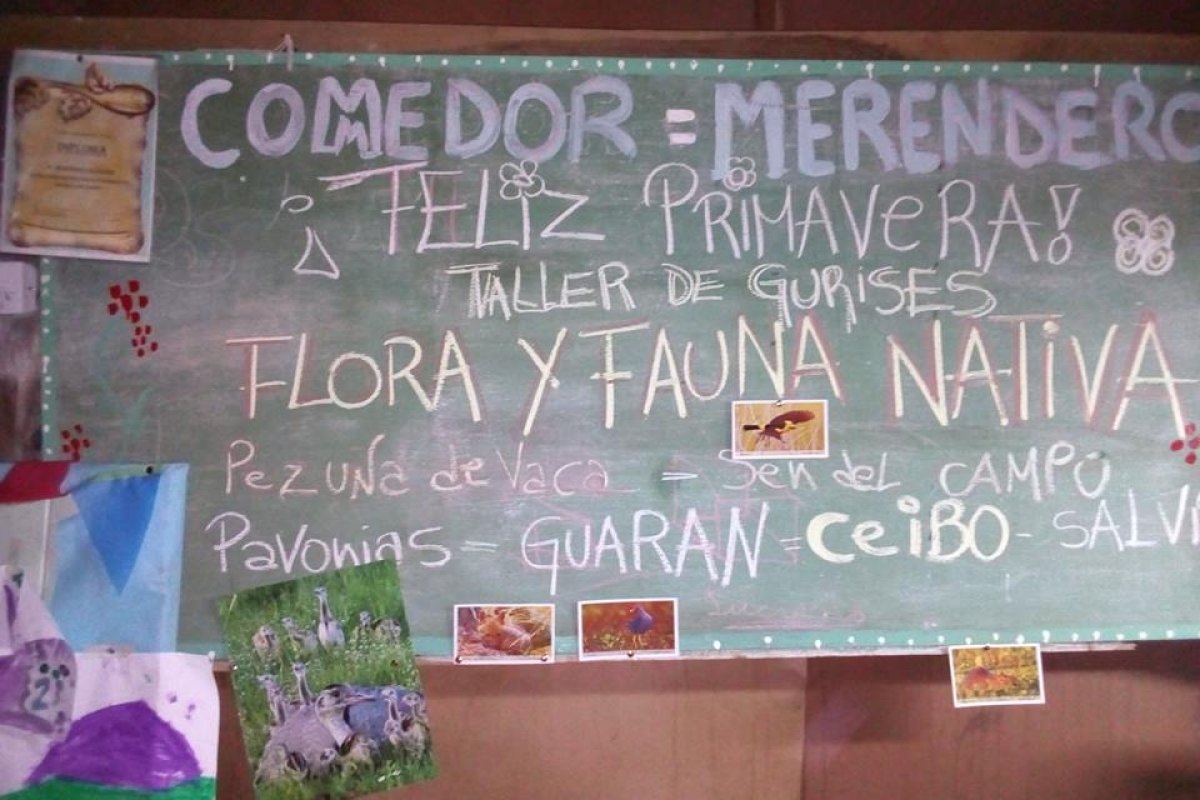 DIPLOMA
COMEDOR = MERENDERO
¡FELIZ PRIMAVERA!
TALLER DE GURISES
FLORA Y FAUNA NATIVA
Pezuña de Vaca = Sen del CAMPO
Pavonias = GUARAN = CeiBO - SALVI
2